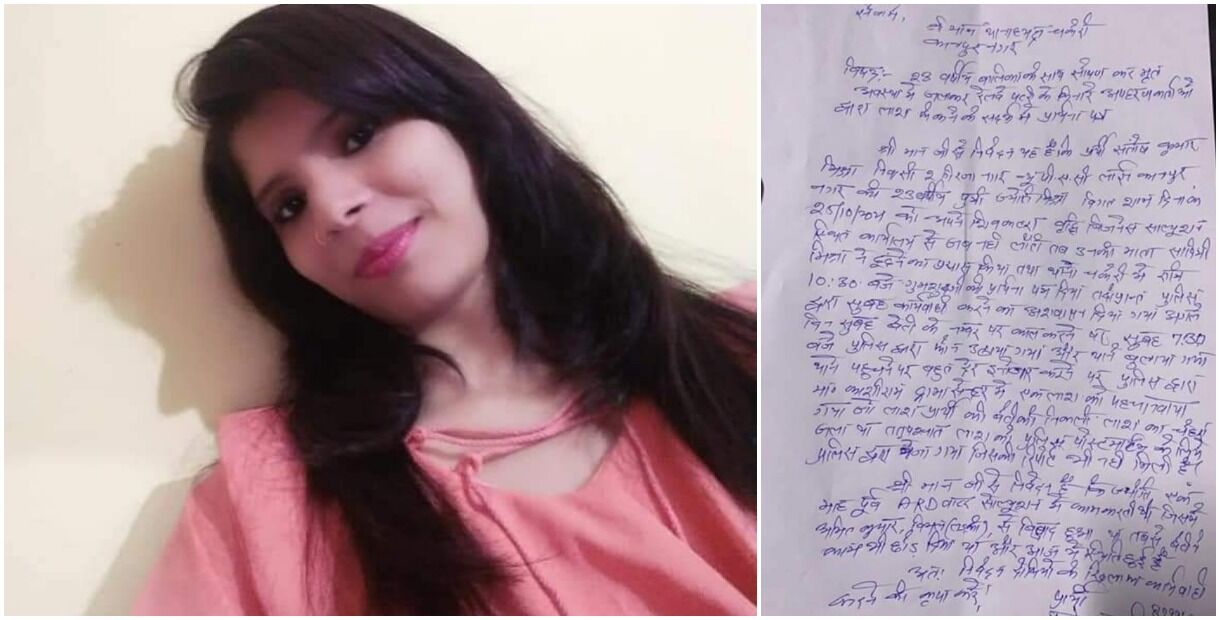 सेवामें,
श्री मान थानाध्यक्ष चकेरी
कानपुर नगर
विषय:- 23 वर्षीय बालिका के साथ कर मृत
अवस्था में जलाकर रेलवे पटरी के किनारे
द्वारा लाश फेंकने के सम्बन्ध में प्रार्थना पत्र
श्री मान जी से निवेदन यह है कि प्रार्थी संतोष कुमार
मिश्रा निवासी कानपुर
नगर की 23 वर्षीय पुत्री ज्योति मिश्रा विगत शाम दिनांक
25/10/ को अपने शिवकटरा
स्थित कार्यालय से जब नहीं लौटी तब उनकी माता सावित्री
मिश्रा ने ढूंढने का प्रयास किया तथा थाना चकेरी में रात्रि
10:30 बजे गुमशुदगी की प्रार्थना पत्र दिया पुलिस
द्वारा सुबह कार्यवाही करने का आश्वासन दिया गया अगले
दिन सुबह बेटी के नम्बर पर काल करने पर सुबह 7:30
बजे पुलिस द्वारा फोन उठाया गया और थाने बुलाया गया
थाने पहुचने पर बहुत देर इन्तेजार करने पर पुलिस द्वारा
मा० काशीराम में एक लाश को पहचानवाया
गया जो लाश प्रार्थी की बेटी की निकली लाश का चेहरा
जला था तत्पश्चात लाश को पुलिस पोस्टमार्टम के लिये
पुलिस द्वारा भेजा गया जिसकी रिपोर्ट भी नहीं मिली है।
श्री मान जी से निवेदन है कि ज्योति एक
माह पूर्व ARD में काम करती थी जिसमें
अमित कुमार, से विवाद हुआ था तबसे बेटी ने
काम भी छोड़ दिया था और आज ये स्थिति हुई है
अतः निवेदन दोषियों के खिलाफ कार्यवाही
करने की कृपा करें।
प्रार्थी